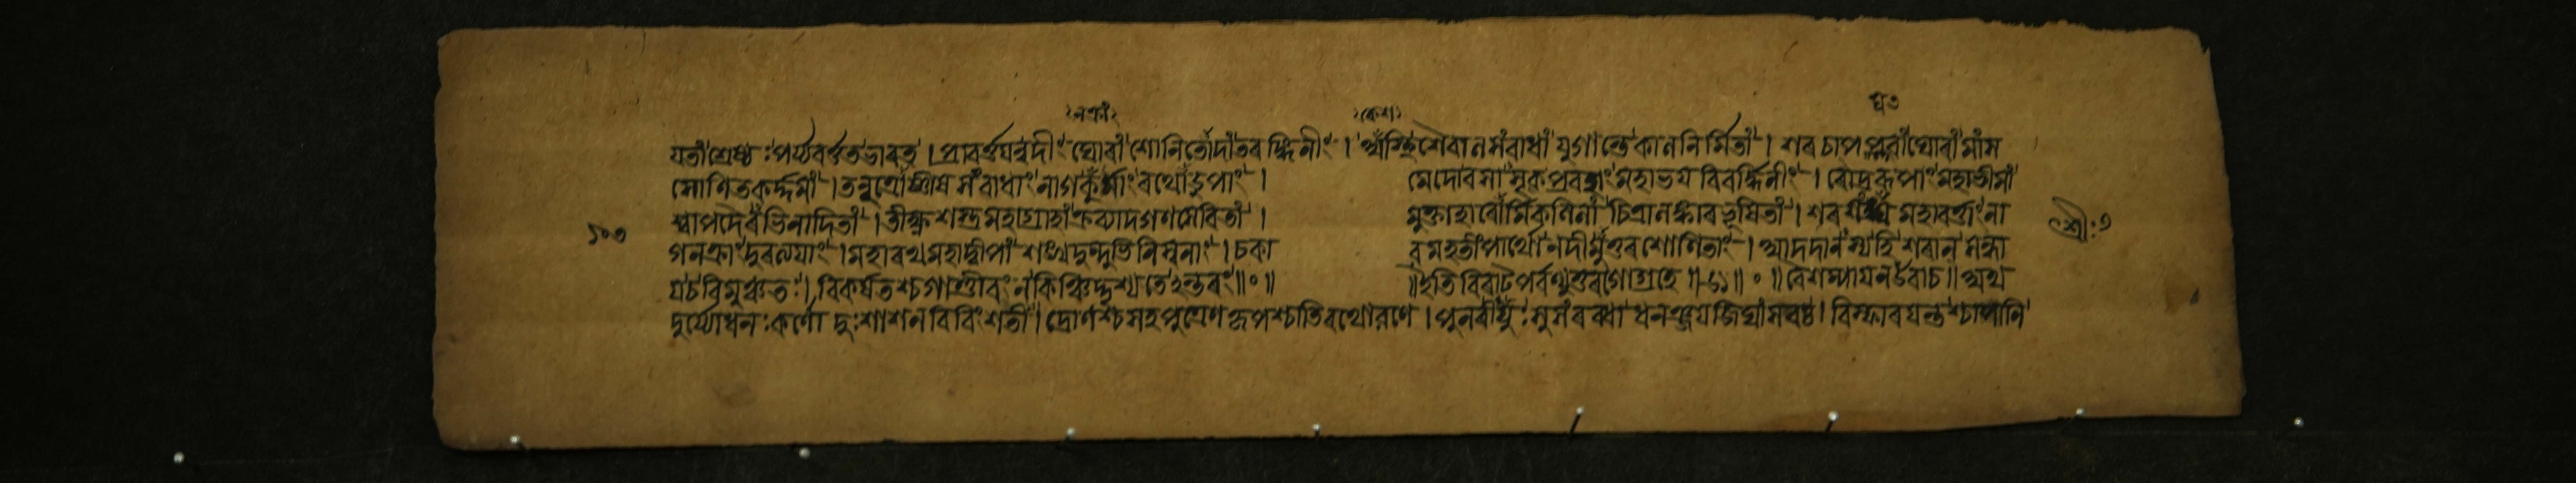 যতাং শ্রেষ্ঠঃ পর্য্যবর্ত্তত ভারত । প্রাবর্ত্তযন্নদীং ঘোরাং শোনিতোদাং তরঙ্গিনীং । অস্থিশৈবালসংবাধাং যুগান্তে কালনির্মিতাং । শরচাপপ্লবাং ঘোরাং মাংস
শোণিতকর্দ্দমাং । তনুত্রোষ্ণীষসংবাধাং নাগকূর্ম্মাং রথোডুপাং । মেদোবসাসৃক্প্রবহাং মহাভযবিবর্দ্ধিনীং । রৌদ্ররূপাং মহাভীমাং
শ্বাপদৈরভিনাদিতাং । তীক্ষ্ণশস্ত্রমহাগ্রাহাং ক্রব্যাদগণসেবিতাং । মুক্তাহারোর্মিকলিলাং চিত্রালঙ্কারভূষিতাং । শর মহাবর্ত্তাং না
১০৩
গনক্রাং দুরত্যযাং । মহারথমহাদ্বীপাং শঙ্খদুন্দুভিনিস্বনাং । চকা র মহতীং পার্থো নদীমুত্তরশোণিতাং । আদদানস্য হি শরান্ সন্ধা
শ্রীঃ
য চ বিমুঞ্চতঃ । বিকর্ষতশ্চ গাণ্ডীবং ন কিঞ্চিদ্দৃশ্যতেঽন্তরং ॥ ০ ॥ ॥ ইতি বিরাটপর্বণ্যুত্তরগোগ্রহে ॥ ৬১ ॥ ০ ॥ বৈশম্পাযন উবাচ ॥ অথ
দুর্য্যোধনঃ কর্ণো দুঃশাশনবিবিংশতী । দ্রোণশ্চ সহ পুত্রেণ কৃপশ্চাতিরথো রণে । পুনরীযুঃ সুসংরব্ধা ধনঞ্জযজিঘাংসবঃ । বিস্ফারযন্তশ্চাপানি